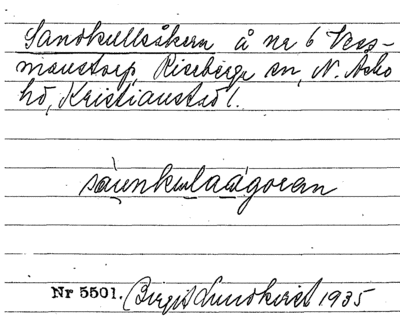 Sandkullsåkern å nr 6 Vess-
manstorp, Riseberga sn, N. Åsbo
hd, Kristianst. l.
Nr 5501. Birgit Lundkvist 1935